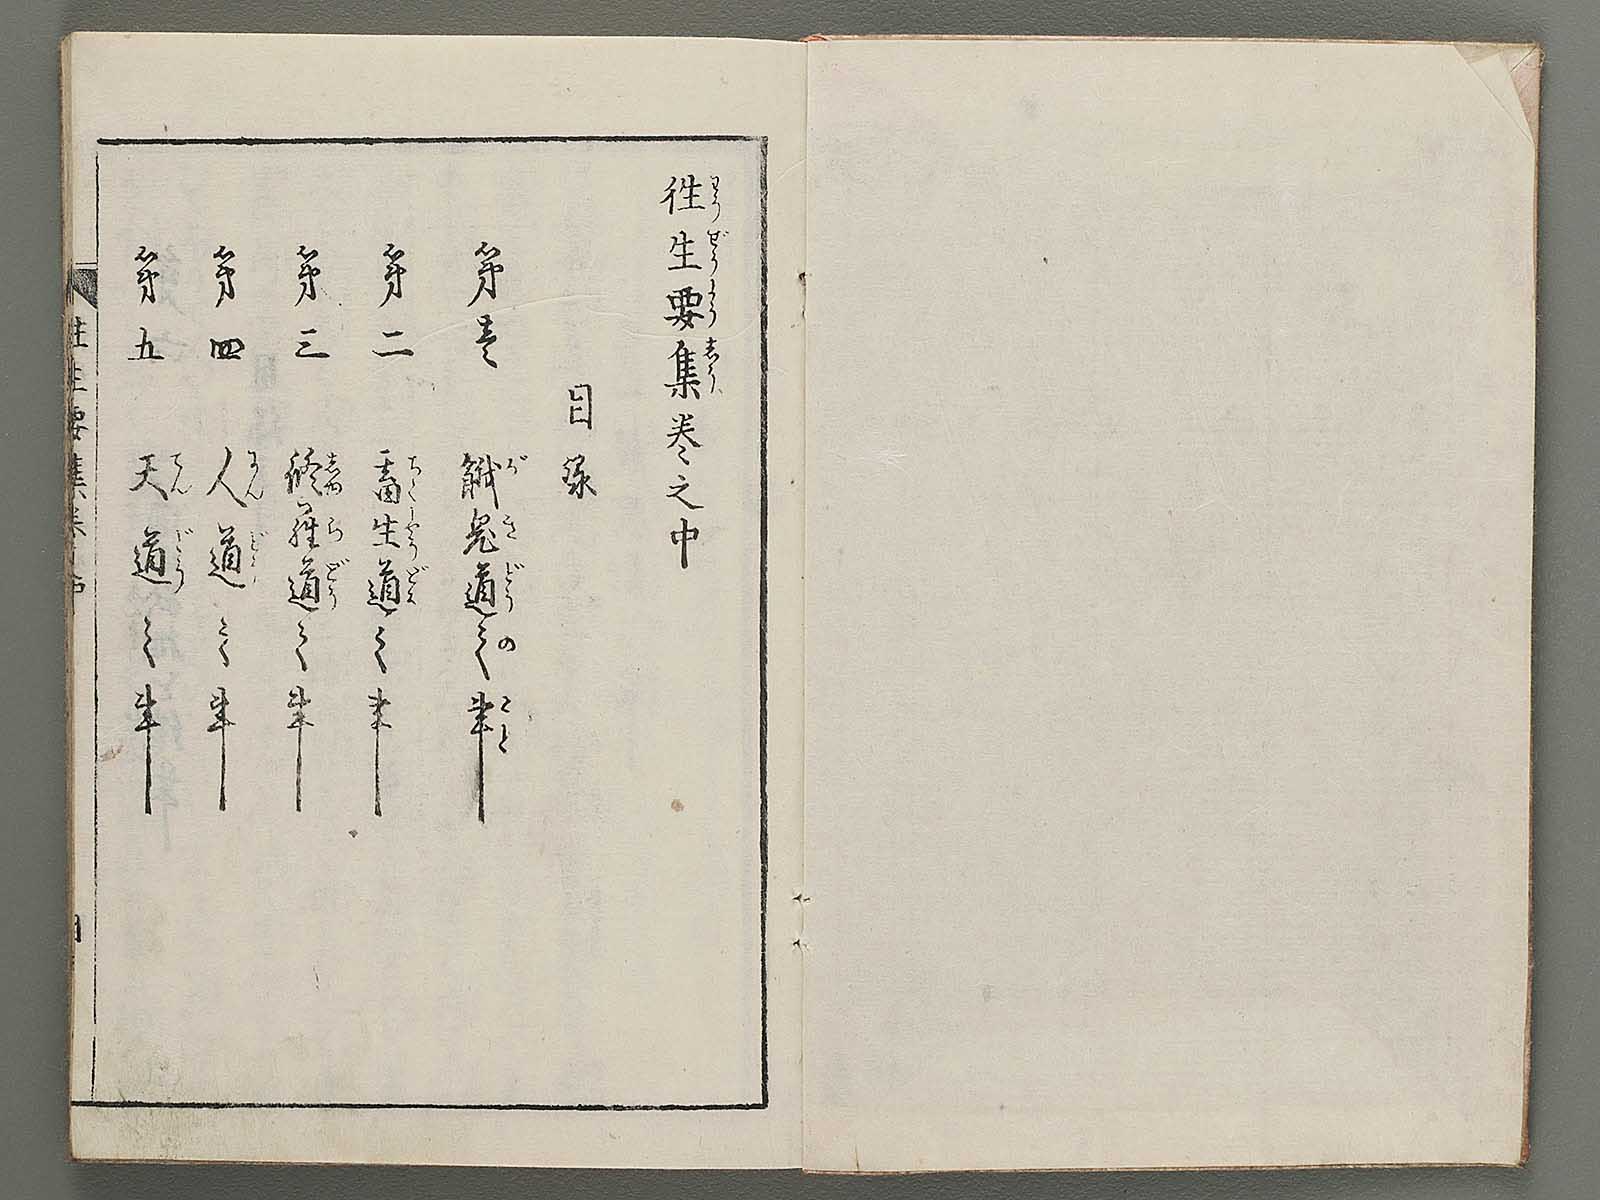 往生要集巻之中
目録
第壱 餓鬼道之事
第二 畜生道之事
第三 修羅道之事
第四 人道之事
第五 天道之事
往生要集巻中